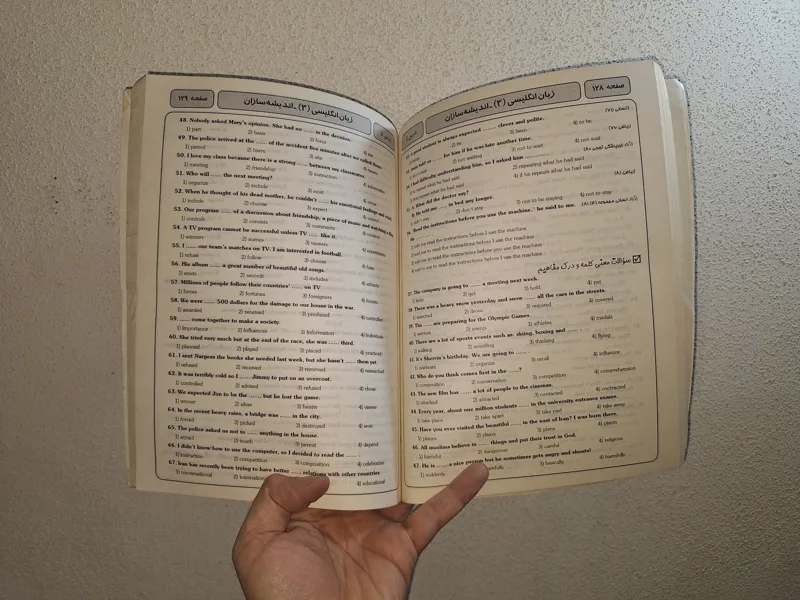 صفحه ۱۲۸
زبان انگلیسی (۳) ـ اندیشه‌سازان
student is always expected ...... clever and polite.
2) be 3) been 4) to be
told us ...... for him if he was late another time.
2) not waiting 3) not to wait 4) not wait
had difficulty understanding him, so I asked him ......
2) repeating what he had said
4) if he repeats what he had said
A. What did the doctor say?
B. He told me ...... in bed any longer.
2) don't stay 3) not to be staying 4) not to stay
Read the instructions before you use the machine." he said to me.
me to read the instructions before I use the machine
me to read the instructions before I use the machine
me to read the instructions before you use the machine
to me to read the instructions before I use the machine
سؤالات معنی کلمه و درک مفاهیم
37. The company is going to ...... a meeting next week.
1) keep 2) get 3) hold 4) put
38. There was a heavy snow yesterday and snow ...... all the cars in the streets.
2) dress 3) required 4) covered
39. The ...... are preparing for the Olympic Games.
1) serious 2) events 3) athletes 4) medals
40. There are a lot of sports events such as: skiing, boxing and ......
1) walking 2) wrestling 3) thinking 4) flying
41. It's Shervin's birthday. We are going to ......
1) celebrate 2) organize 3) recall 4) influence
42. Who do you think comes first in the ......?
1) composition 2) conversation 3) competition 4) comprehension
43. The new film has ...... a lot of people to the cinemas.
1) attacked 2) attracted 3) contacted 4) contracted
44. Every year, about one million students ...... in the university entrance exams.
1) take place 2) take apart 3) take part 4) take away
45. Have you ever visited the beautiful ...... in the east of Iran? I was born there.
1) places 2) plains 3) plans 4) plants
46. All muslims believe in ...... things and put their trust in God.
1) harmful 2) dangerous 3) careful 4) religious
47. He is ...... a nice person but he sometimes gets angry and shouts!
1) suddenly 3) basically 4) harmfully
صفحه ۱۲۹
زبان انگلیسی (۳) ـ اندیشه‌سازان
48. Nobody asked Mary's opinion. She had no ...... in the decision.
1) part 2) basis 3) force
49. The police arrived at the ...... of the accident five minutes after we called
1) period 2) horro 3) site
50. I love my class because there is a strong ...... between my classmates.
1) meeting 2) friendship 3) instruction
51. Who will ...... the next meeting?
1) organize 2) include 3) insist
52. When he thought of his dead mother, he couldn't ...... his emotional feelings and cried.
1) include 2) choose 3) expect
53. Our program ...... of a discussion about friendship, a piece of music and watching a
1) controls 2) consists 3) comments
54. A TV program cannot be successful unless TV ...... like it.
1) winners 2) names 3) viewers
55. I ...... our team's matches on TV. I am interested in football.
1) refuse 2) follow 3) choose 4) hate
56. His album ...... a great number of beautiful old songs.
1) insists 2) records 3) includes 4) attracts
57. Millions of people follow their countries' ...... on TV.
1) forces 2) fortunes 3) foreigners
58. We were ...... 500 dollars for the damage to our house in the war.
1) awarded 2) received 3) punished 4) controlled
59. ...... come together to make a society.
1) Importance 2) Influences 3) Information 4) Individuals
60. She tried very much but at the end of the race, she was ...... third.
1) planned 2) played 3) placed 4) practiced
61. I sent Nargess the books she needed last week, but she hasn't ...... them yet.
1) refused 2) received 3) removed 4) researched
62. It was terribly cold so I ...... Jimmy to put on an overcoat.
1) controlled 2) advised 3) refused 4) chose
63. We expected Jim to be the ...... but he lost the game.
1) winner 2) silver 3) heater 4) viewer
64. In the recent heavy rains, a bridge was ...... in the city.
1) forced 2) picked 3) destroyed 4) won
65. The police asked us not to ...... anything in the house.
1) attract 2) touch 3) permit 4) depend
66. I didn't know how to use the computer, so I decided to read the ...... .
1) instruction 2) competition 3) composition 4) celebration
67. Iran has recently been trying to have better ...... relations with other countries.
1) conversational 2) international 4) educational